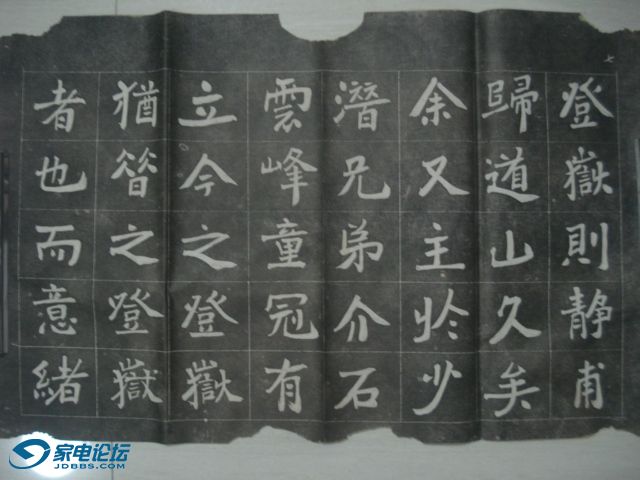 七
登嶽則静甫
歸道山久矣
余又主於少
潛兄弟介石
雲峰童冠有
立今之登嶽
猶昝之登嶽
者也而意緒
家电论坛
JDBBS.COM